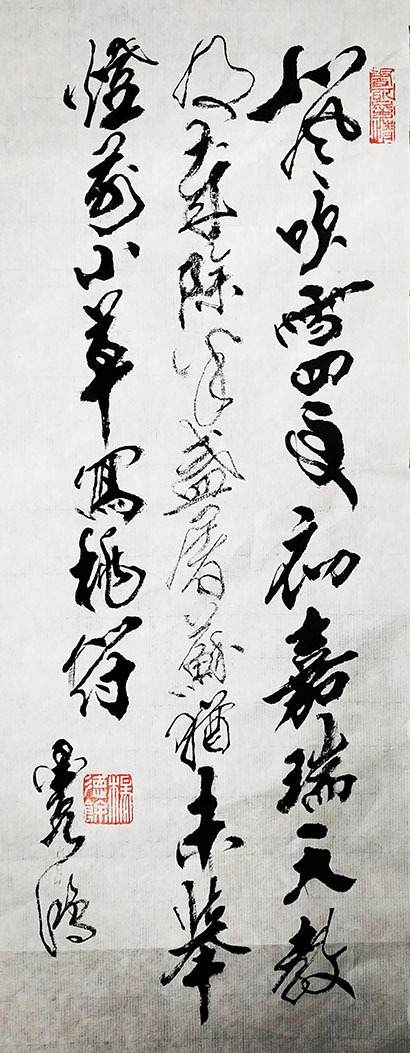 北風吹雪四更初嘉瑞天教
及歲除半盞屠蘇猶未舉
燈前小草寫桃符